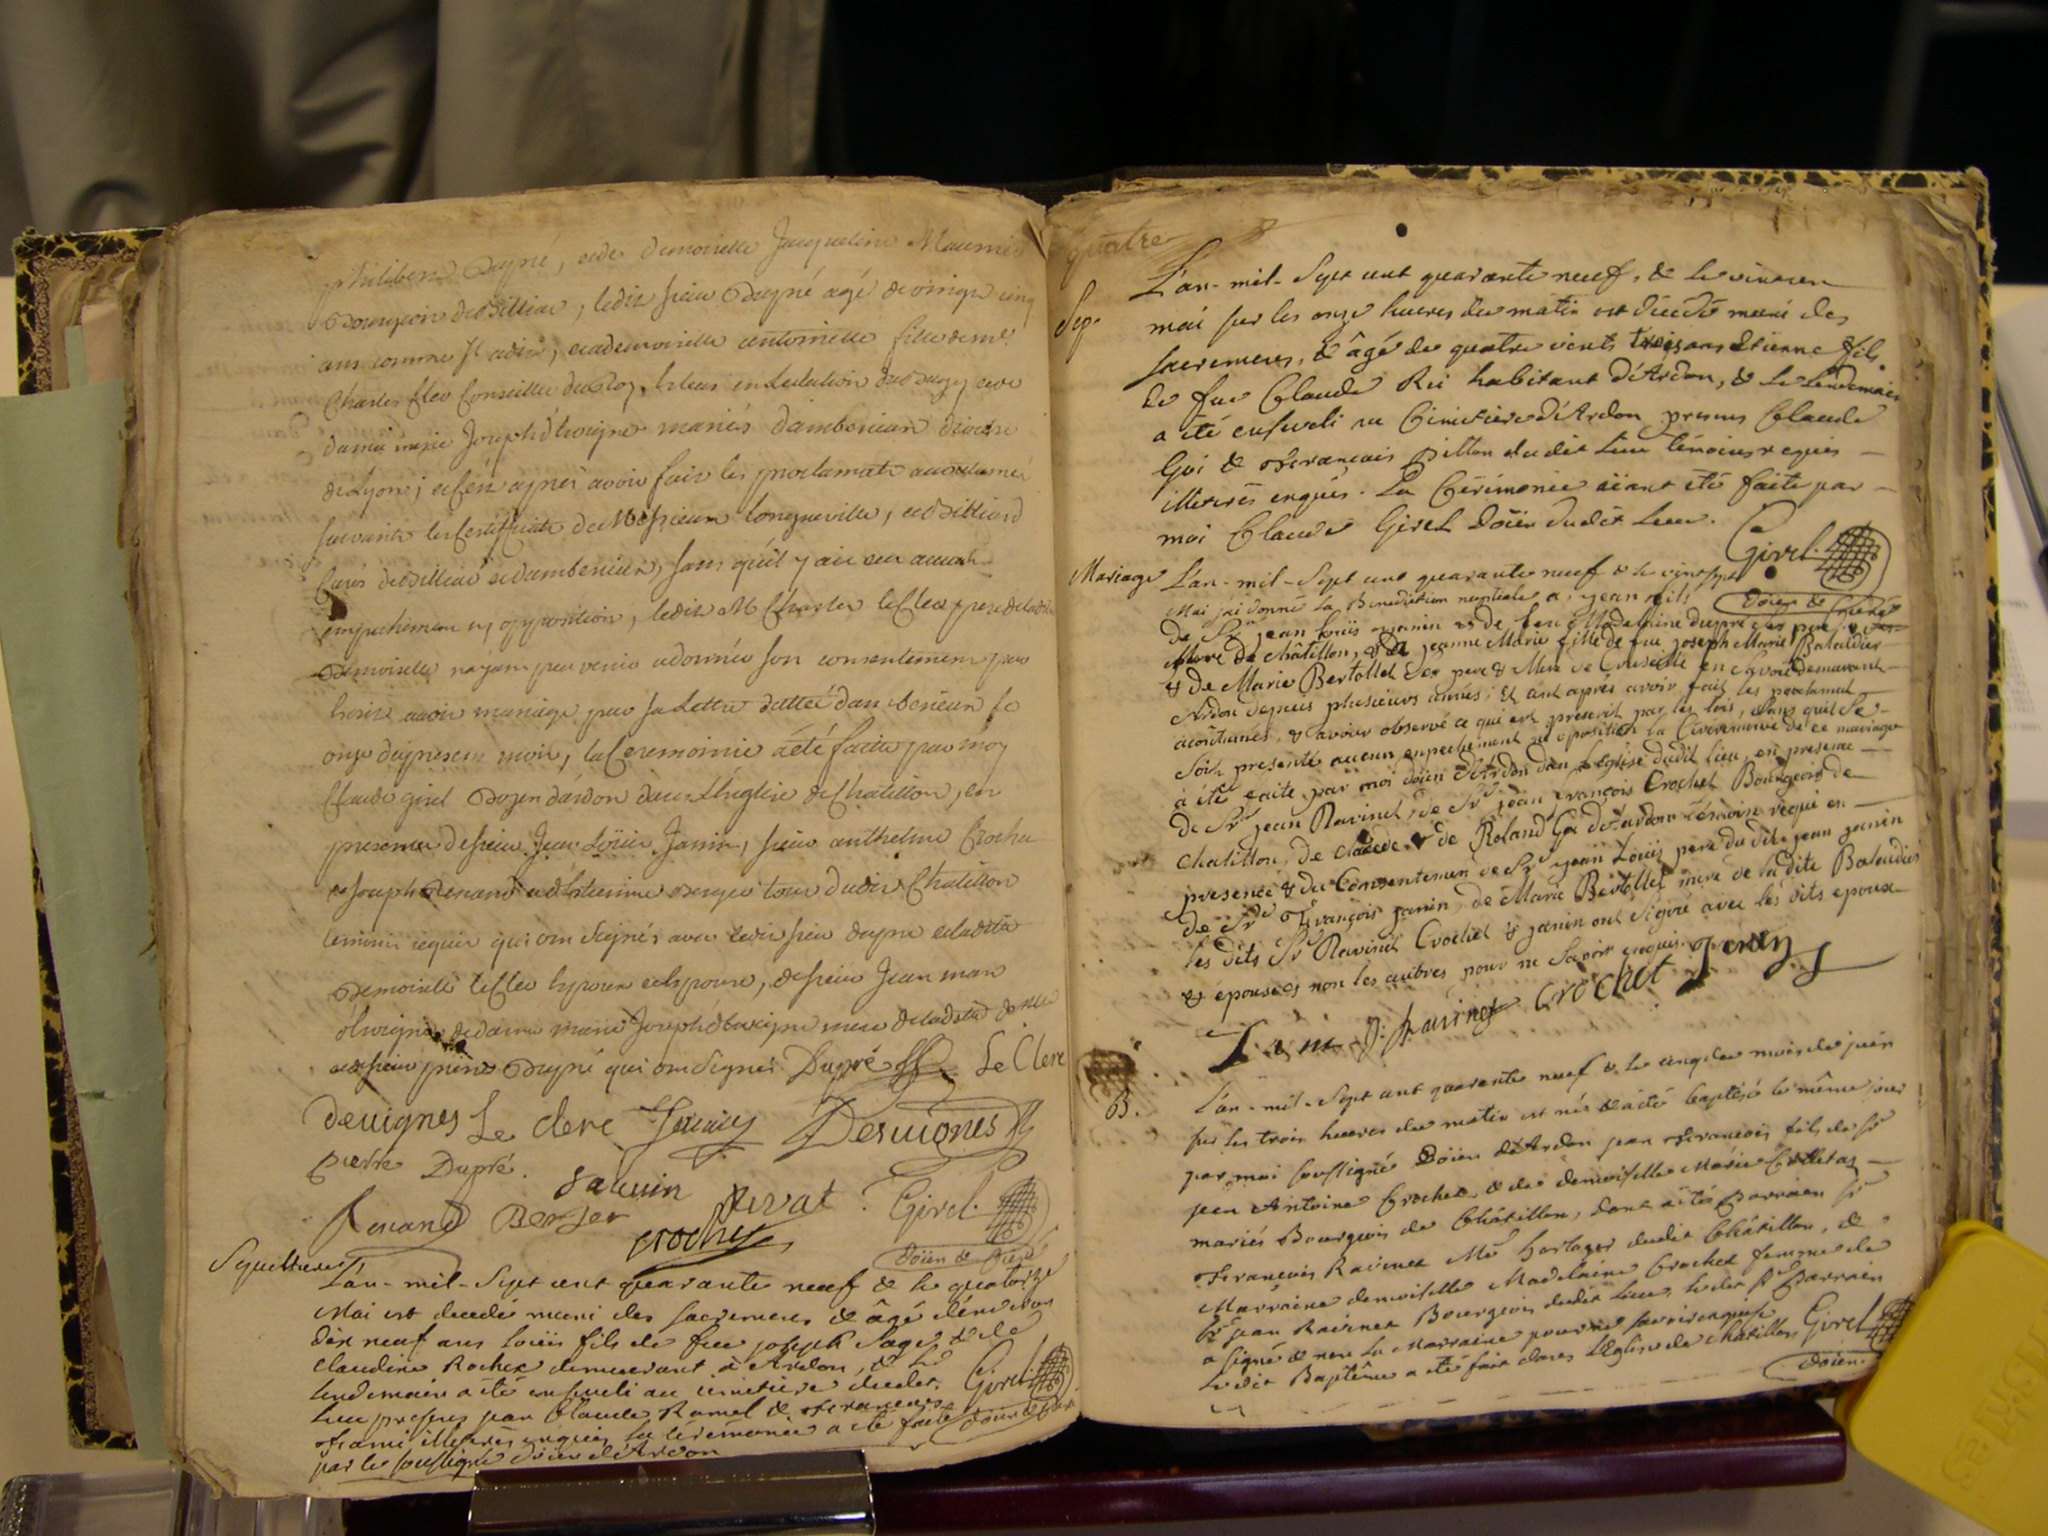 philibert Dupré, et de demoiselle Jacqueline
Bourgeois de Billiat, ledit sieur Dupré âgé de vingt cinq
ans comme il a dit, et demoiselle antoinette fille de mr
Charles Clerc Conseiller du Roy,
dame marie Joseph mariés d'ambenieux diocese
de Lyon; et ce après avoir fait les proclamats
suivant les Certificats de Messieurs Longueville, et Billiard
Curés de Billiat et d'ambenieux, sans qu'il y ait eu aucun
empechement ny opposition, ledit M Charles leClerc pere de ladite
Demoiselle n'ayant peu venir a donnée son consentement par
avoir mariage par sa Lettre dattée d'ambenieux le
onze du present mois, la Ceremonie a été faite par moy
Claude girel Doyen d'ardon dans l'Eglise de Chatillon, en
presence de sieur Jean Loüis Janin, sieur anthelme Crochet
Joseph Renand et Estienne Berger tous dudit Chatillon
temoins requis qui ont Signés avec ledit sieur dupré et ladite
Demoiselle leClerc Epoux et Epouse, de sieur Jean marc
de dame marie Joseph mere de ladite
et de sieur pierre Dupré qui ont Signés Dupré Le Clerc
devignes Le clerc Desvignes
pierre Dupré. Janin
Renand Berger Girel
Crochet
Doïen de
Sepulture
L'an-mil-Sept cent quarante neuf & le quatorze
Mai est decedé muni des sacremens & âgé d'environ
dix neuf ans Loüis fils de feu joseph Sage & de
Claudine Rochex demeurant à Ardon, & le
lendemain a été enseveli au cimetiere dudit
lieu presens Claude Ramel & François
illiterés enquis la cérémonie a été faite Girel
par le soussigné doïen d'Ardon Doïen d'
quatre
L'an-mil-Sept cent quarante neuf, & le
Sep.
mai sur les onze heures du matin est décédé muni des
sacremens, & âgé de quatre vints trois ans Etienne fils
de feu Claude Rei habitant d'Ardon, & le lendemain
a été enseveli au Cimetiere d'Ardon presens Claude
Goi & François Billon dudit lieu témoins requis
illiterés enquis. La Cérémonie aïant été faite par
moi Claude Girel Doïen dudit lieu.
Girel
Doïen de
Mariage
L'an-mil-Sept cent quarante neuf & le vint sept
Mai jai donné la Benediction nuptiale a jean fils
de Sr jean Loüis janin & de feu Madelaine dupré
Mere de châtillon, & jeanne Marie fille de feu joseph Marie Baladier
& de Marie Bertollet Ses pere & Mere de Cruseille en Savoi demeurant
Ardon depuis plusieurs années; Et ont après avoir fait les proclamat
acoutumés, & avoir observé ce qui est prescrit par les lois, Sans qu'il se
Soit presenté aucun enpechement ni oposition la Cérémonie de ce mariage
à été faite par moi doïen d'Ardon dans leglise dudit lieu, en presence
de Sr jean Ravinet, de Sr jean françois Crochet Bourgeois de
chatillon, de claude & de Roland Goi d'ardon témoins requi en
presence & du Consentement de Sr jean Loüis pere du dit jean janin
de Sr François janin, de Marie Bertollet mere de la dite Baladier
les dits Sr Ravinet Crochet & janin ont Signé avec les dits epoux
& epouses non les autres pour ne Savoir enquis. janin
J. Ravinet Crochet
B.
L'an-mil-Sept cent quarante neuf & le cinq du mois de juin
sur les trois heures du matin est né & a été baptisé le même jour
par moi soussigné Doïen d'Ardon jean François fils de Sr
jean Antoine Crochet & de demoiselle Marie
mariés Bourgeois de Châtillon, dont a été Parrain Sr
François Ravinet Me Horloger dudit Châtillon, &
Marraine demoiselle Madelaine Crochet femme de
Sr jean Ravinet Bourgeois dudit lieu, ledit Sr Parrain
a signé & non la Marraine pour ne savoir enquise
Ledit Baptême a été fait dans l'Eglise de Châtillon Girel
Doïen